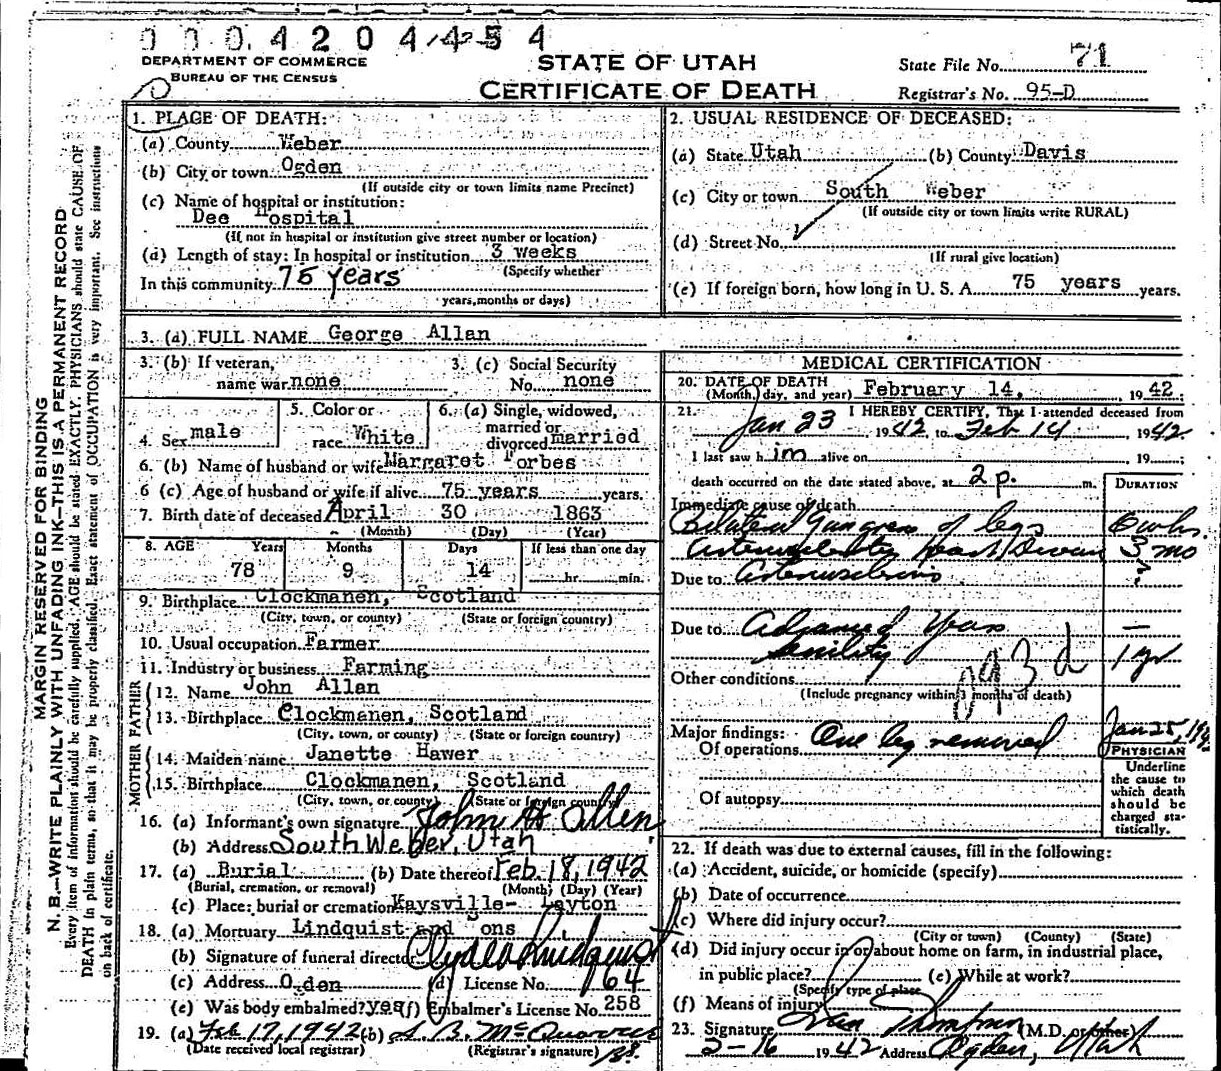 0 0 0 4 2 0 4 4 5 4
DEPARTMENT OF COMMERCE
BUREAU OF THE CENSUS
STATE OF UTAH
CERTIFICATE OF DEATH
State File No. 71
Registrar's No. 95-D
MARGIN RESERVED FOR BINDING
N. B.—WRITE PLAINLY WITH UNFADING INK—THIS IS A PERMANENT RECORD
Every item of information should be carefully supplied. AGE should be stated EXACTLY. PHYSICIANS should state CAUSE OF
DEATH in plain terms, so that it may be properly classified. Exact statement of OCCUPATION is very important. See instructions
on back of certificate.
1. PLACE OF DEATH:
(a) County Weber
(b) City or town Ogden
(If outside city or town limits name Precinct)
(c) Name of hospital or institution:
Dee Hospital
(If not in hospital or institution give street number or location)
(d) Length of stay: In hospital or institution 3 weeks
(Specify whether
In this community 75 years
years, months or days)
2. USUAL RESIDENCE OF DECEASED:
(a) State Utah (b) County Davis
(c) City or town South Weber
(If outside city or town limits write RURAL)
(d) Street No.
(If rural give location)
(e) If foreign born, how long in U. S. A. 75 years years.
3. (a) FULL NAME George Allan
3. (b) If veteran,
name war none
3. (c) Social Security
No. none
4. Sex male
5. Color or
race White
6. (a) Single, widowed,
married or
divorced married
6. (b) Name of husband or wife Margaret Forbes
6 (c) Age of husband or wife if alive 75 years years.
7. Birth date of deceased April 30 1863
(Month) (Day) (Year)
8. AGE Years Months Days If less than one day
78 9 14 hr. min.
9. Birthplace Clockmanen, Scotland
(City, town, or county) (State or foreign country)
10. Usual occupation Farmer
11. Industry or business Farming
FATHER
12. Name John Allan
13. Birthplace Clockmanen, Scotland
(City, town, or county) (State or foreign country)
MOTHER
14. Maiden name Janette Hawer
15. Birthplace Clockmanen, Scotland
(City, town, or county) (State or foreign country)
16. (a) Informant's own signature John H Allen
(b) Address South Weber, Utah
17. (a) Burial (b) Date thereof Feb. 18, 1942
(Burial, cremation, or removal) (Month) (Day) (Year)
(c) Place: burial or cremation Kaysville- Layton
18. (a) Mortuary Lindquist and ons
(b) Signature of funeral director Clyde Lindquist
(c) Address Ogden (d) License No. 64
(e) Was body embalmed? yes (f) Embalmer's License No. 258
19. (a) Feb 17, 1942 (b)
(Date received local registrar) (Registrar's signature)
MEDICAL CERTIFICATION
20. DATE OF DEATH
(Month, day, and year) February 14, 1942.
21. I HEREBY CERTIFY, That I attended deceased from
Jan 23 1942 to Feb 14 1942.
I last saw him alive on 19
death occurred on the date stated above, at 2 p. m.
DURATION
Immediate cause of death
Bilateral Gangrene of legs 6 wks
Arteriosclerotic Heart Disease 3 mo
Due to Arteriosclerosis
Due to Advanced Years —
Senility 1 yr
093d
Other conditions
(Include pregnancy within 3 months of death)
Major findings:
Of operations One leg removed Jan 25, 194
Of autopsy
PHYSICIAN
Underline
the cause to
which death
should be
charged sta-
tistically.
22. If death was due to external causes, fill in the following:
(a) Accident, suicide, or homicide (specify)
(b) Date of occurrence
(c) Where did injury occur?
(City or town) (County) (State)
(d) Did injury occur in or about home on farm, in industrial place,
in public place? (e) While at work?
(Specify type of place
(f) Means of injury
23. Signature Thompson (M.D. or other)
2-16 1942 Address Ogden, Utah